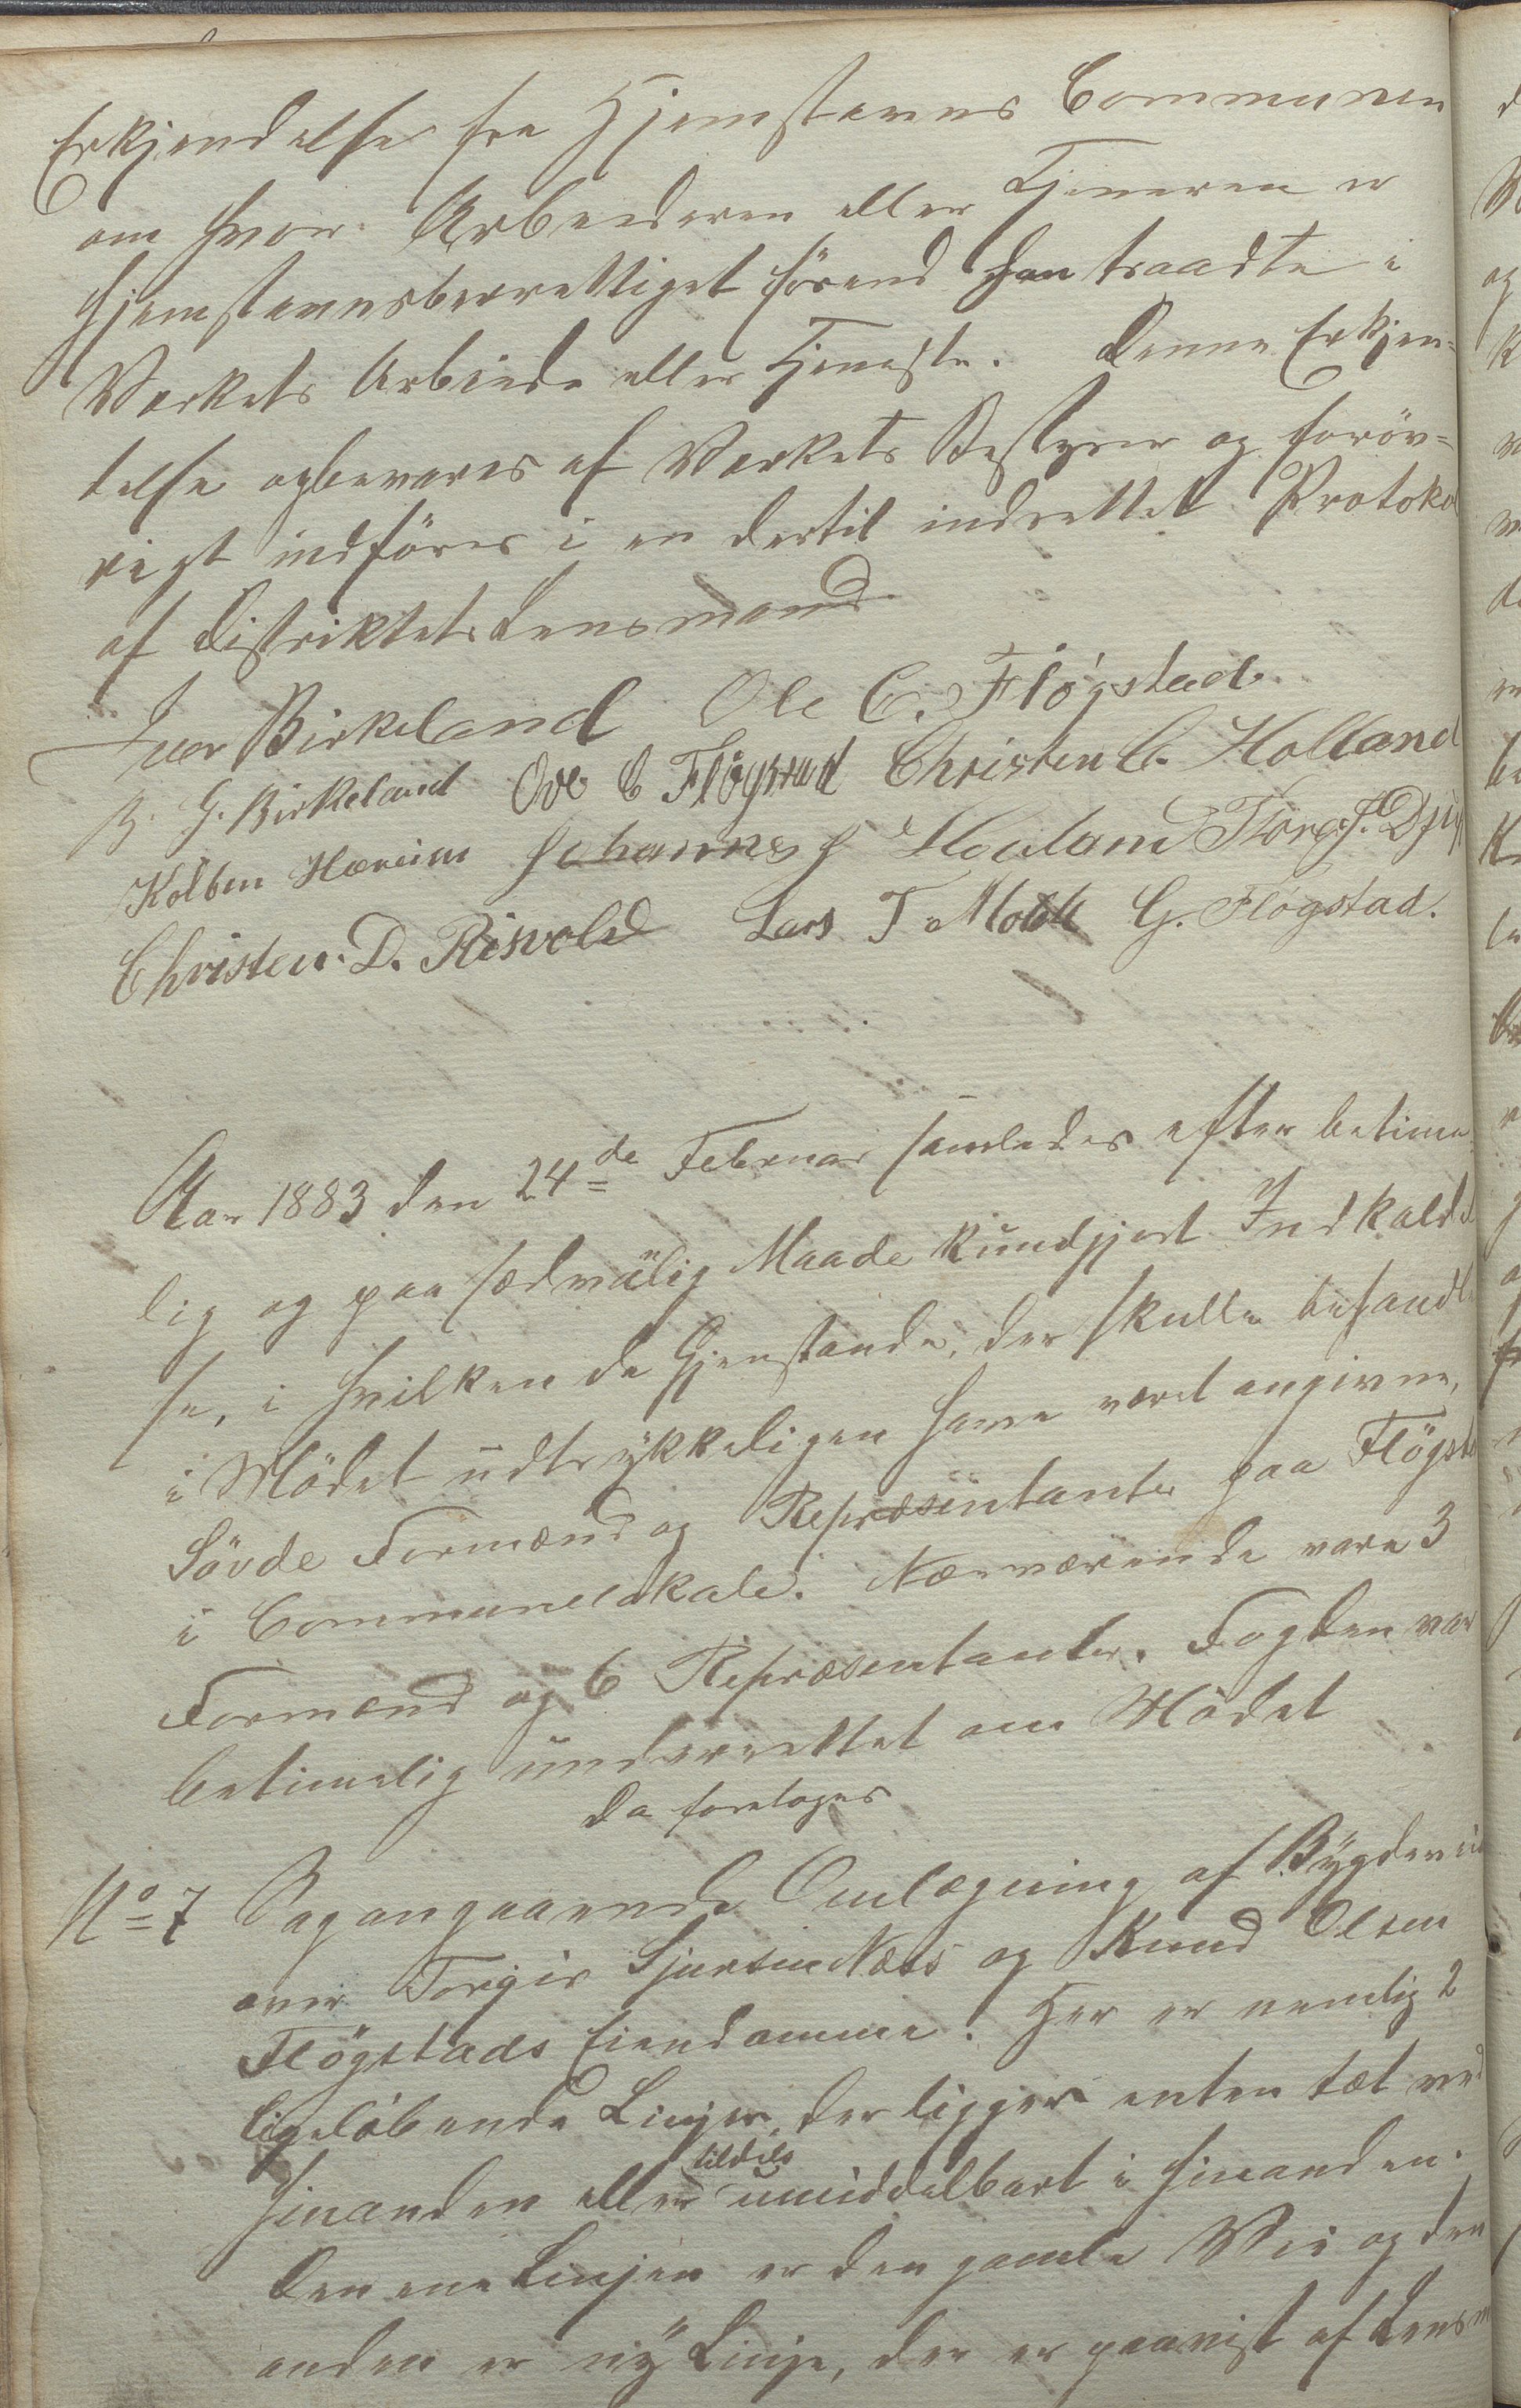 Erkjendelse fra Hjemstavns Communen
om hvor Arbeideren eller Tjeneren er
hjemstavnsberettiget förend han traadte i
Værkets Arbeide eller Tjeneste. Denne Erkjen-
telse opbevares af Værkets Bestyrer og foröv-
rigt indföres i en dertil indrettet Protokol
af Distriktets Lensmand
Iver Birkeland Ole C. Flögstad
B. G. Birkeland Ove C Flögstad Christen C. Holland
Kolben Hæreim Johannes J Hooland Tore J.
Christen. D. Risvold Lars T Moe G. Flögstad.
Aar 1883 den 24de Februar samledes efter betime
lig og paa sædvälig Maade kundgjort Indkaldel
se, i hvilken de Gjenstande, der skulle behandle
i Mödet udtrykkeligen have været angivne,
Sövde Formænd og Repræsentanter paa Flögsta
i Communelokale. Nærværende vare 3
Formænd og 6 Repræsentanter. Fogden var
betimelig underrettet om Mödet
Da foretoges
No 7 Sag angaaende Omlægning af Bygdevei
over Torgir Sjursen Næss og Knud Olsen
Flögstads Eiendomme. Her er nemlig 2
ligelöbende Linjer, der ligger enten tæt ved
hinanden eller tildels umiddelbart i hinanden.
Den ene Linjen er den gamle Vei og den
anden er ny Linje, der er paavist af Lensm